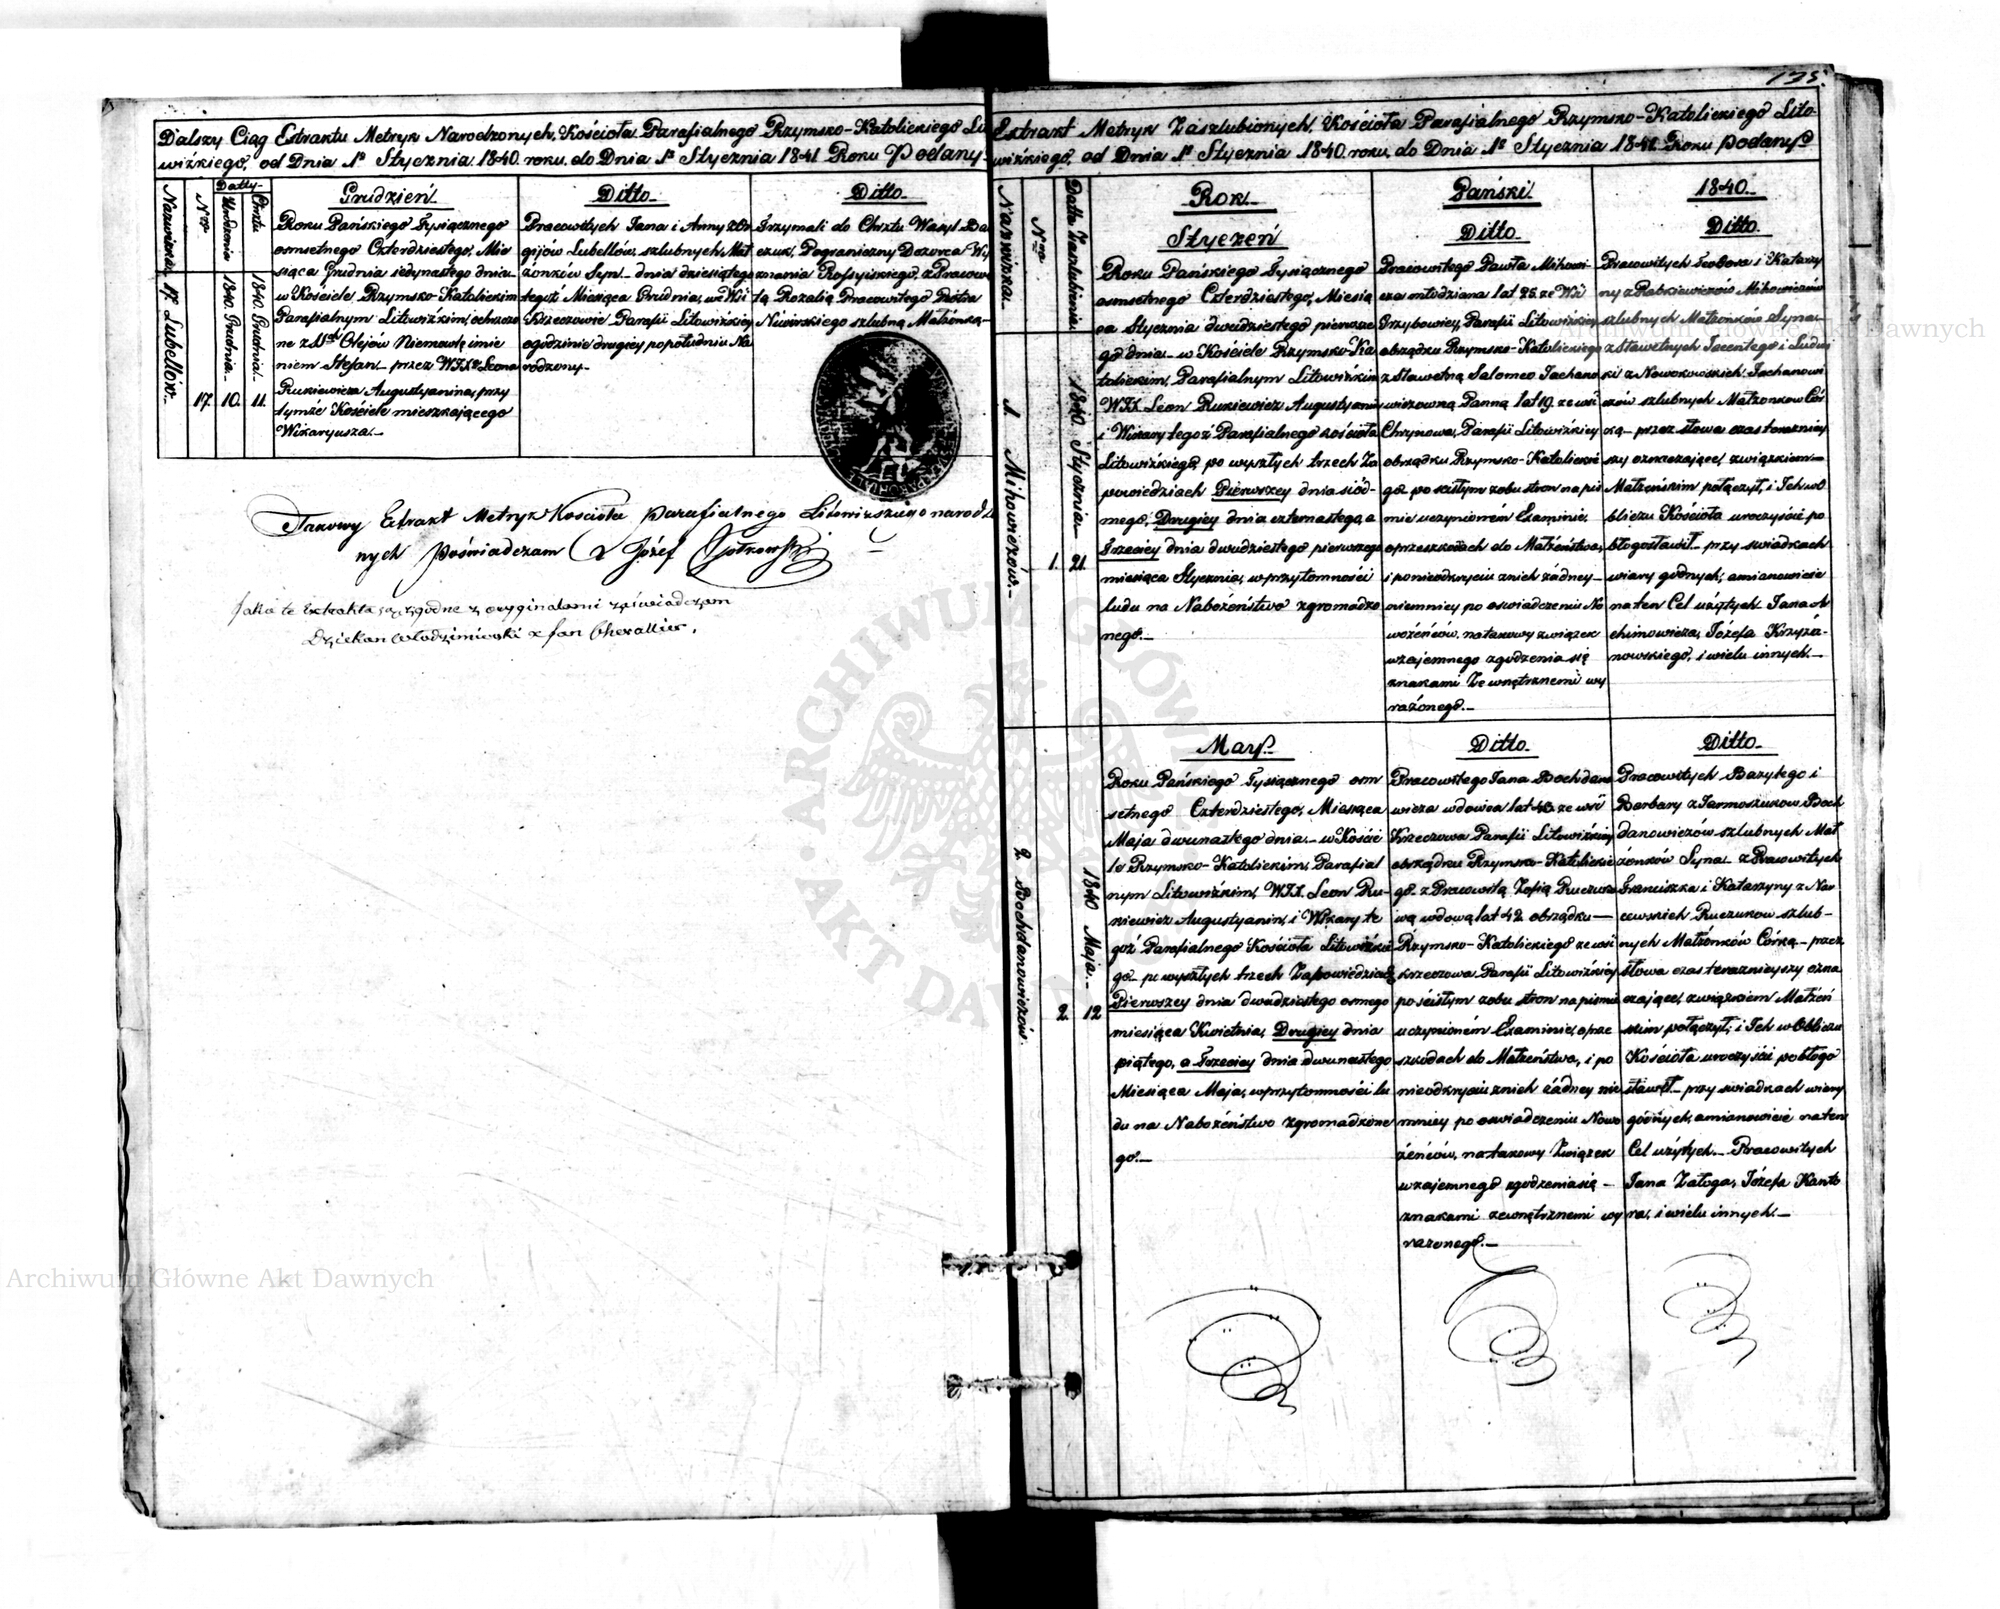 Dalszy Ciąg Extraktu Metryk Narodzonych, Kościoła Parafialnego Rzymsko-Katolickiego Li
wiżkiego, od Dnia 1º Stycznia 1840. roku, do Dnia 1º Stycznia 1841 Roku Podany
Nazwiska
Nro
Datty
Urodzenia
Chrztu
17. Lubellów.
17.
1840 Grudnia
10.
1840 Grudnia
11.
Grudzień
Roku Pańskiego Tysiącznego
osmsetnego Czterdziestego, Mie
siąca Grudnia jedynastego dnia
w Kościele Rzymsko-Katolickim
Parafialnym Litowiżkim, ochrzco
ne z SSmi Olejów Niemowlę imie
niem Stefan przez WJXa Leona
Rukiewicza Augustyanina, przy
tymże Kościele mieszkającego
Wikaryusza.
Ditto
Pracowitych Jana i Anny
Lubellów, szlubnych Mał
żonków Syn dnia dziesiątego
tegoż Miesiąca Grudnia, we Wsi
Krzeczowie Parafii Litowiżkiey
ogodzinie drugiey popołudniu Na
rodzony.
Ditto
Trzymali do Chrztu Wasyl
Pograniczny Dozorca Wy
znania Rossyiskiego, z Pracowi
tą Rozalią Pracowitego Piotra
szlubną Małżonką
Takowy Extrakt Metryk Kościoła Parafialnego Litowiżskiego narodzo
nych poświadczam X Józef
Jako te Extrakta są zgodne z oryginałami zaświadczam
Dziekan Włodzimirski X Jan Chevallier.
135.
Extrakt Metryk Zaszlubionych, Kościoła Parafialnego Rzymsko-Katolickiego Lito
wiżkiego, od Dnia 1º Stycznia 1840. roku, do Dnia 1º Stycznia 1841. Roku podany
Nazwiska
Nro
Datta Zaszlubienia
1. Mihowiczów.
1.
1840 Stycznia
21.
Rok
Styczeń
Roku Pańskiego Tysiącznego
osmsetnego Czterdziestego, Miesią
ca Stycznia dwudziestego pierwsze
go dnia w Kościele Rzymsko-Ka
tolickim, Parafialnym Litowiżkim
WJX Leon Rukiewicz Augustyanin
i Wikary tegoż Parafialnego Kościoła
Litowiżkiego, po wyszłych trzech Za
powiedziach Pierwszey dnia siód-
mego, Drugiey dnia czternastego, a
Trzeciey dnia dwudziestego pierwszego
miesiąca Stycznia, w przytomności
ludu na Nabożeństwo zgromadzo
nego.
Pański
Ditto
Pracowitego Pawła Mihowi-
cza młodziana lat 25. ze Wsi
Grzybowicy, Parafii Litowiżkiey
obrządku Rzymsko-Katolickiego
z Sławetną Salomeo Jachano
wiczowną Panną lat 19. ze wsi
Chrynowa, Parafii Litowiżkiey
obrządku Rzymsko-Katolickie
go po ścisłym z obu stron na piś
mie uczynioném Examinie,
o przeszkodach do Małżeństwa,
i ponieodkryciu znich żadney
niemniey po oswiadczeniu No
wożeńców, na takowy związek
wzajemnego zgodzenia się
znakami Zewnętrznemi wy
rażonego.
1840.
Ditto
Pracowitych Teodora i Katarzy
ny z Rabkiewiczów Mihowiczów
szlubnych Małżonków Syna
z Sławetnych Jacentego i Ludwi
ki z Nowokowskich Jachanowi
czów szlubnych Małżonków Cór
ką przez słowa czas teraźniey
szy oznaczające, związkiem
Małżeńskim połączył, i Ich w o
bliczu Kościoła uroczyście po
błogosławił przy swiadkach
wiary godnych, a mianowicie
na ten Cel użytych Jana
chimowicza, Józefa Krzyża-
nowskiego, i wielu innych.
2. Bochdanowiczów.
2.
1840 Maja
12
Marß.
Roku Pańskiego Tysiącznego osm
setnego Czterdziestego, Miesiąca
Maja dwunastego dnia w Kościo
le Rzymsko-Katolickim, Parafial
nym Litowiżkim, WJX. Leon Ru-
kiewicz Augustyanin, i Wikary te
goż Parafialnego Kościoła Litowiżkie
go po wyszłych trzech Zapowiedziach
Pierwszey dnia dwudziestego osmego
miesiąca Kwietnia, Drugiey dnia
piątego, a Trzeciey dnia dwunastego
Miesiąca Maja, w przytomności lu
du na Nabożeństwo zgromadzone
go.
Ditto
Pracowitego Jana Bochdano
wicza wdowca lat 48. ze wsi
Krzeczowa Parafii Litowiżkiey
obrządku Rzymsko-Katolickie
go z Pracowitą Zofią Ruczuko
wą wdową lat 42. obrządku
Rzymsko-Katolickiego ze wsi
Krzeczowa Parafii Litowiżkiey
po ścisłym z obu stron na piśmie
uczynioném Examinie, o prze
szkodach do Małżeństwa, i po
nieodkryciu znich żadney nie
mniey po oswiadczeniu Nowo
żeńców, na takowy Związek
wzajemnego zgodzenia się
znakami zewnętrznemi wy
rażonego.
Ditto
Pracowitych Bazylego i
Barbary z Jarmoszuków Boch
danowiczów szlubnych Mał
żonków Syna z Pracowitych
Franciszka i Katarzyny z Na
Ruczuków szlub-
nych Małżonków Córką przez
słowa czas teraźnieyszy ozna
czające, związkiem Małżeń
skim połączył, i Ich w Obliczu
Kościoła uroczyście pobłogo
sławił przy swiadkach wiary
godnych, a mianowicie na ten
Cel użytych Pracowitych
Jana Załoga, Józefa Kanto
ra, i wielu innych.
Archiwum Główne Akt Dawnych
Archiwum Główne Akt Dawnych
ARCHIWUM GŁÓWNE AKT DAWNYCH